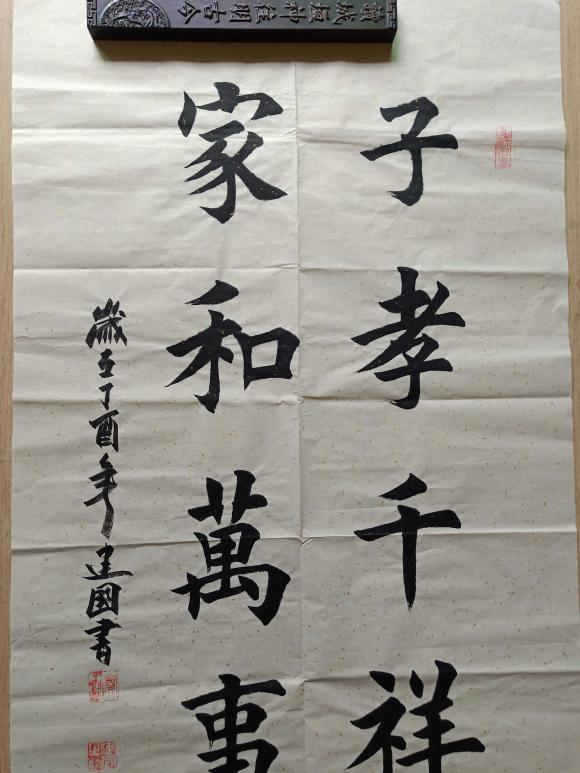 子孝千祥
家和萬事
歲在丁酉年建國書